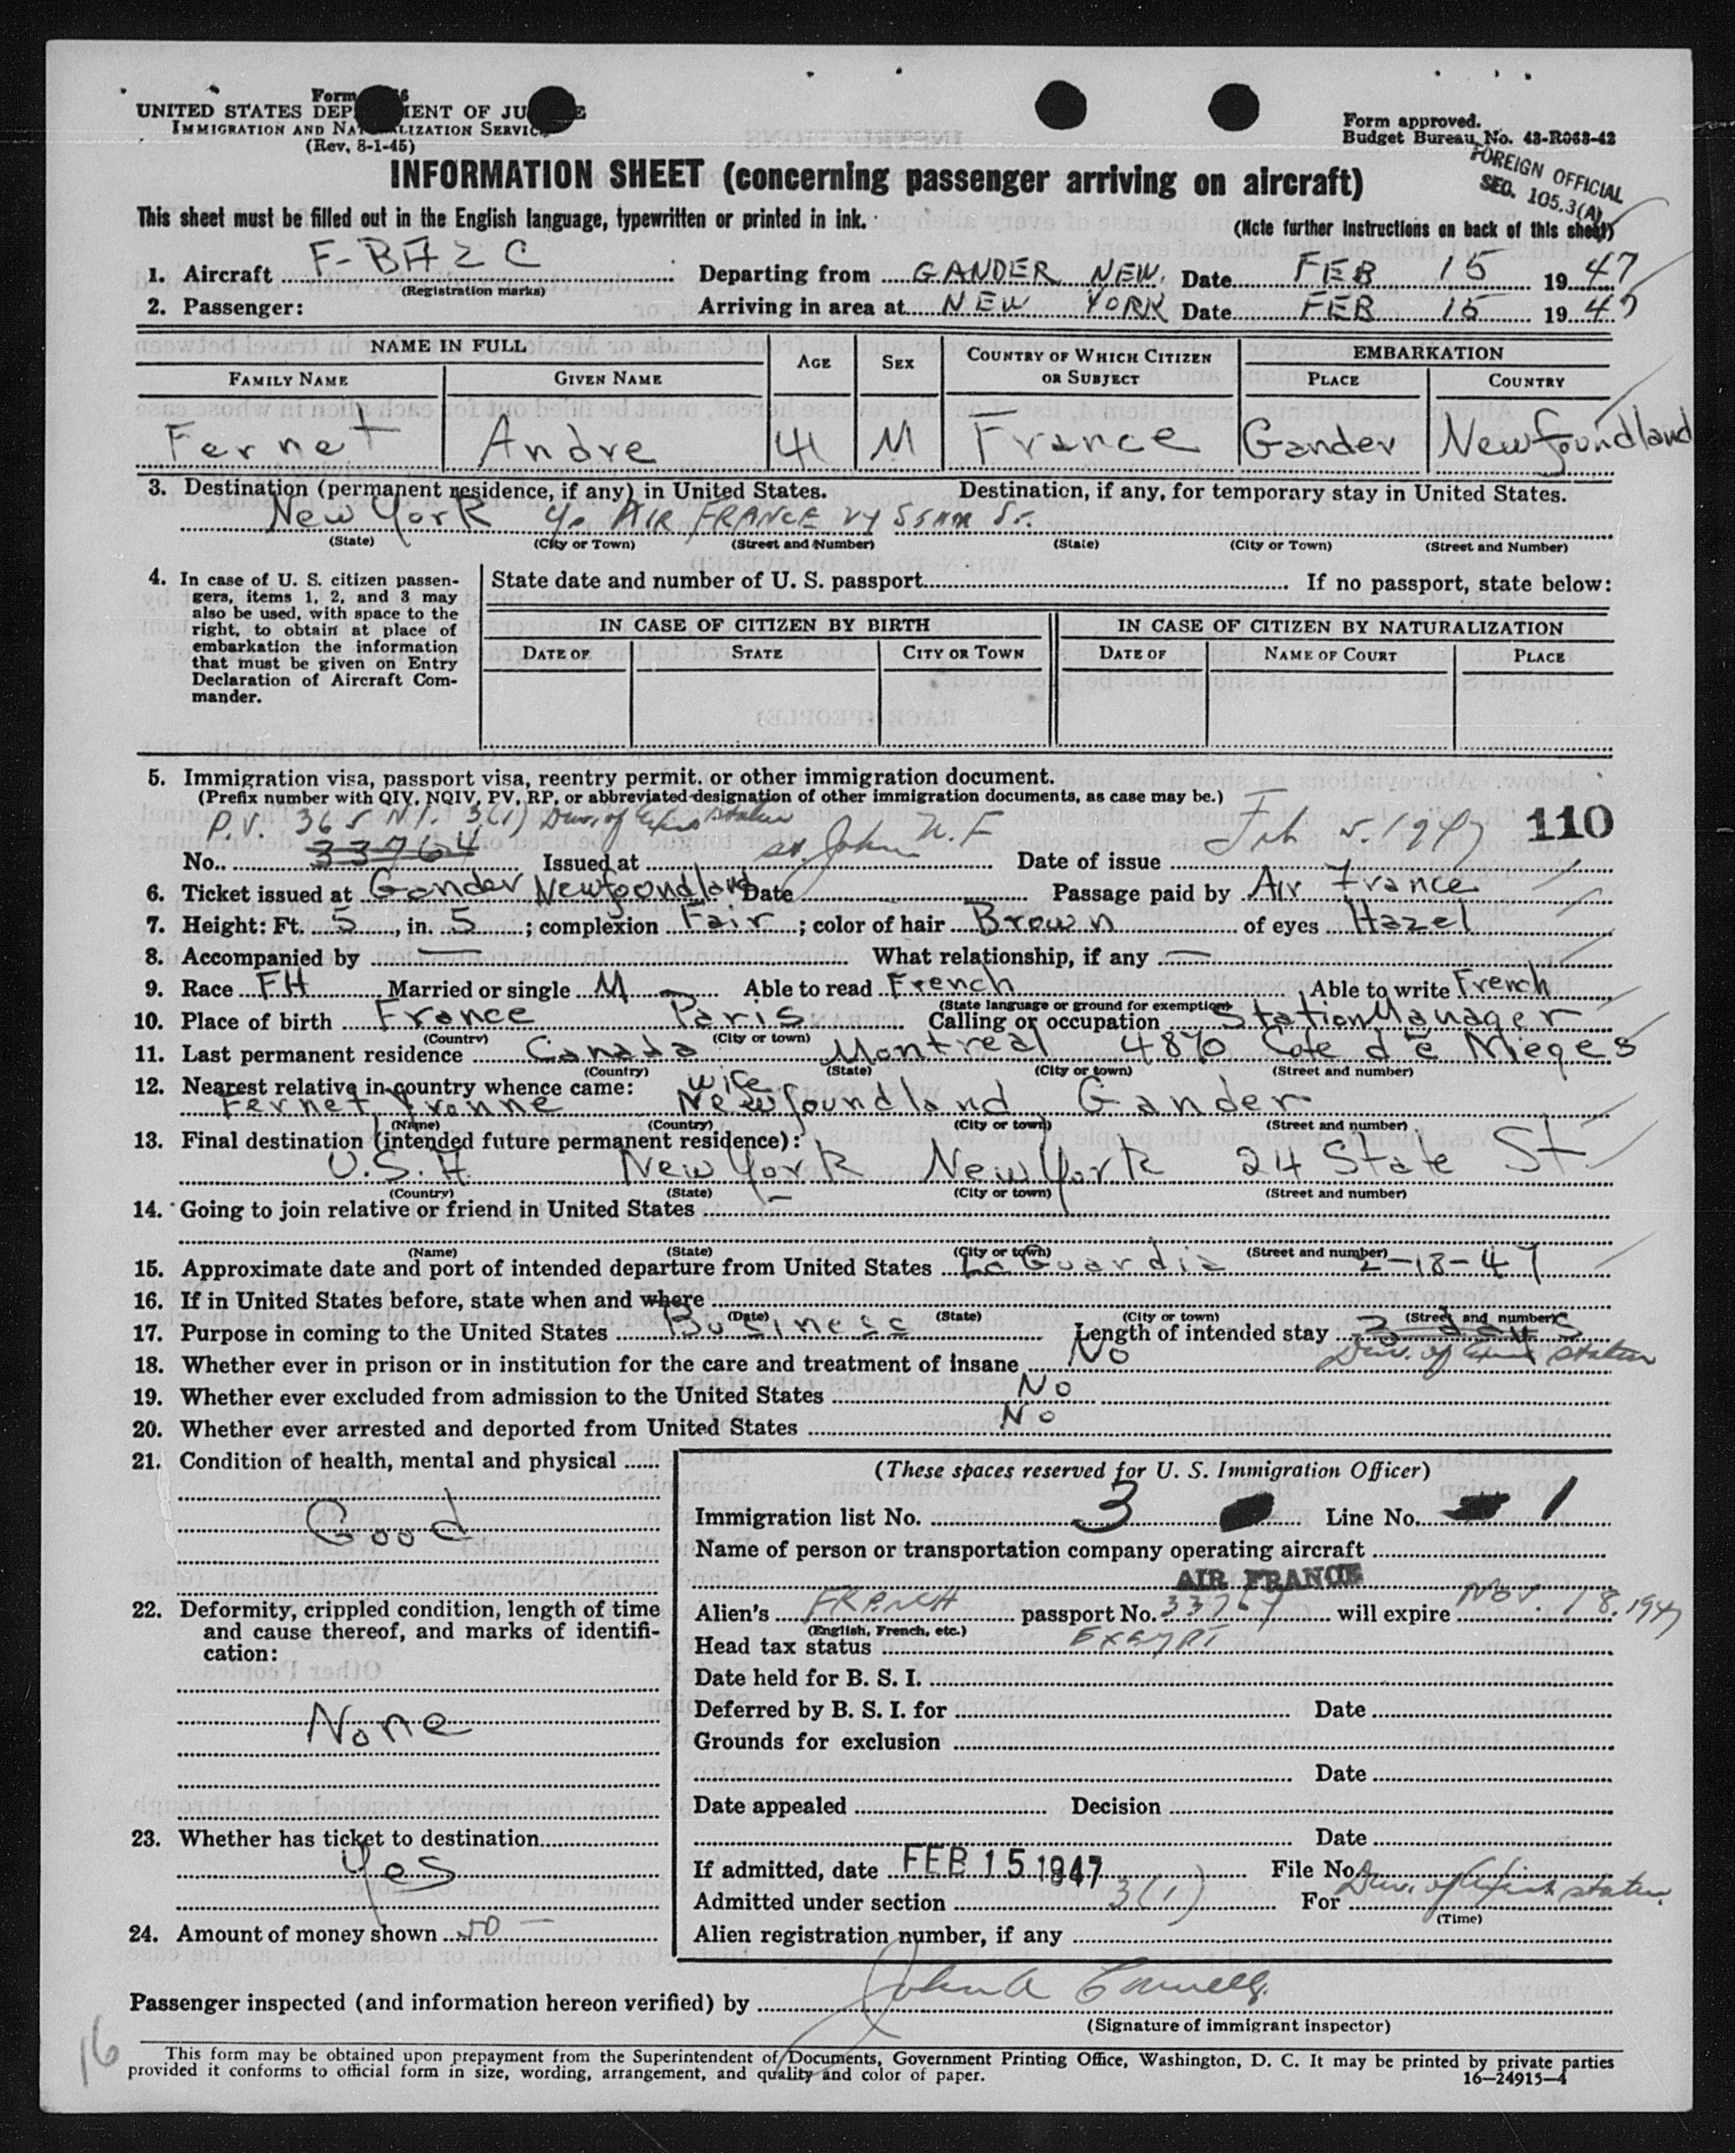 Form
UNITED STATES DEP MENT OF JU E
IMMIGRATION AND NAT LIZATION SERVIC
(Rev. 8-1-45)
Form approved.
Budget Bureau No. 43-R063-42
FOREIGN OFFICIAL
SEC. 105.3(A)
INFORMATION SHEET (concerning passenger arriving on aircraft)
This sheet must be filled out in the English language, typewritten or printed in ink.
(Note further instructions on back of this sheet)
1. Aircraft F-BAZC Departing from GANDER NEW. Date FEB 15 1947
(Registration marks)
2. Passenger: Arriving in area at NEW YORK Date FEB 15 1947
NAME IN FULL AGE SEX COUNTRY OF WHICH CITIZEN OR SUBJECT EMBARKATION
FAMILY NAME GIVEN NAME PLACE COUNTRY
Fernet Andre 41 M France Gander Newfoundland
3. Destination (permanent residence, if any) in United States. Destination, if any, for temporary stay in United States.
New York c/o AIR FRANCE St.
(State) (City or Town) (Street and Number) (State) (City or Town) (Street and Number)
4. In case of U. S. citizen passen-
gers, items 1, 2, and 3 may
also be used, with space to the
right, to obtain at place of
embarkation the information
that must be given on Entry
Declaration of Aircraft Com-
mander.
State date and number of U. S. passport If no passport, state below:
IN CASE OF CITIZEN BY BIRTH IN CASE OF CITIZEN BY NATURALIZATION
DATE OF STATE CITY OR TOWN DATE OF NAME OF COURT PLACE
5. Immigration visa, passport visa, reentry permit. or other immigration document.
(Prefix number with QIV, NQIV, PV, RP, or abbreviated designation of other immigration documents, as case may be.)
P.V. 365 3(1) Dur. of status
110
No. 33764 Issued at St. John N.F Date of issue Feb 5. 1947
6. Ticket issued at Gander Newfoundland Date Passage paid by Air France
7. Height: Ft. 5, in. 5; complexion Fair; color of hair Brown of eyes Hazel
8. Accompanied by — What relationship, if any —
9. Race FH Married or single M Able to read French Able to write French
(State language or ground for exemption)
10. Place of birth France Paris Calling or occupation Station Manager
(Country) (City or town)
11. Last permanent residence Canada Montreal 4870 Cote de Nieges
(Country) (State) (City or town) (Street and number)
12. Nearest relative in country whence came: wife
Fernet, Yvonne Newfoundland Gander
(Name) (Country) (City or town) (Street and number)
13. Final destination (intended future permanent residence):
U.S.A. New York New York 24 State St.
(Country) (State) (City or town) (Street and number)
14. Going to join relative or friend in United States —
(Name) (State) (City or town) (Street and number)
15. Approximate date and port of intended departure from United States La Guardia 2-18-47
16. If in United States before, state when and where
(Date) (State) (City or town) (Street and number)
17. Purpose in coming to the United States Business Length of intended stay 3 days
Dur. of status
18. Whether ever in prison or in institution for the care and treatment of insane No
19. Whether ever excluded from admission to the United States No
20. Whether ever arrested and deported from United States No
21. Condition of health, mental and physical
Good
22. Deformity, crippled condition, length of time
and cause thereof, and marks of identifi-
cation:
None
23. Whether has ticket to destination
Yes
24. Amount of money shown 50 —
(These spaces reserved for U. S. Immigration Officer)
Immigration list No. 3 Line No. 1
Name of person or transportation company operating aircraft
AIR FRANCE
Alien's FRENCH passport No. 33767 will expire Nov. 18. 1947
(English, French, etc.)
Head tax status Exempt
Date held for B. S. I.
Deferred by B. S. I. for Date
Grounds for exclusion
Date
Date appealed Decision
Date
If admitted, date FEB 15 1947 File No.
Admitted under section 3(1) For Dur. of status
(Time)
Alien registration number, if any
Passenger inspected (and information hereon verified) by John A
(Signature of immigrant inspector)
16
This form may be obtained upon prepayment from the Superintendent of Documents, Government Printing Office, Washington, D. C. It may be printed by private parties
provided it conforms to official form in size, wording, arrangement, and quality and color of paper.
16—24915-4